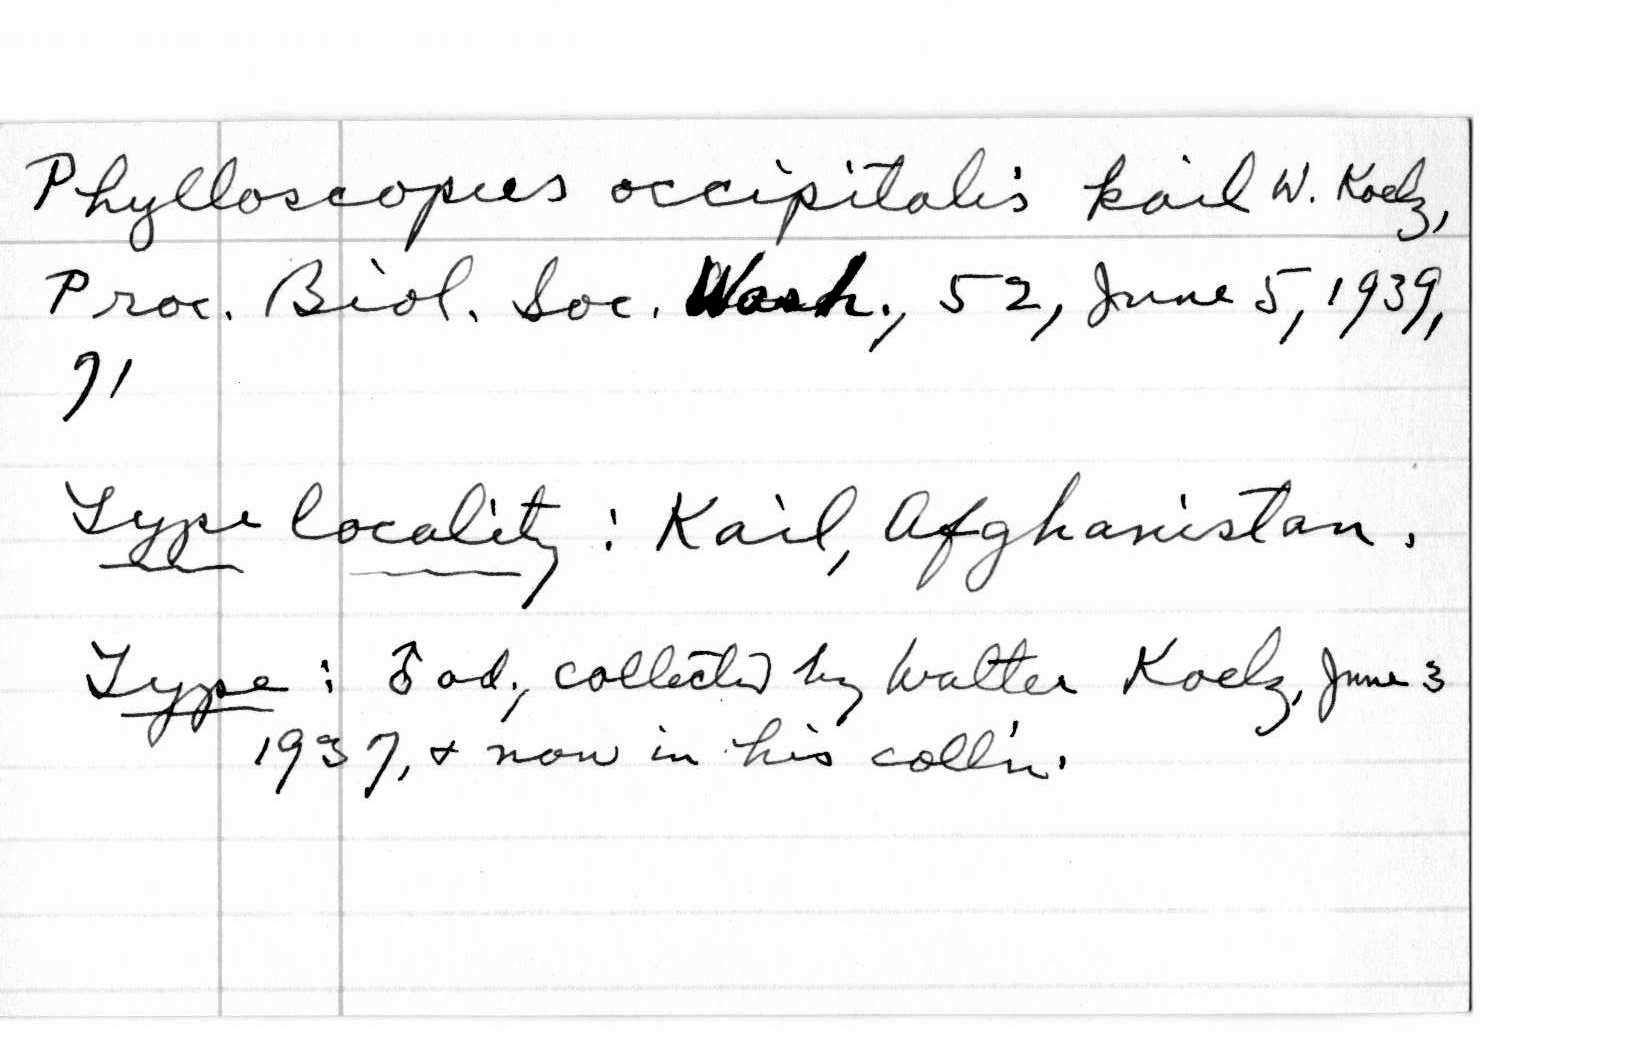 Phylloscopus occipitalis kail W. Koelz,
Proc. Biol. Soc. Wash., 52, June 5, 1939,
71
Type locality: Kail, Afghanistan.
Type: ♂ ad., collected by Walter Koelz, June 3
1937, + now in his coll'n.